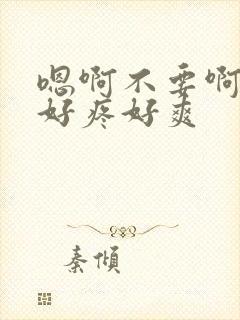 嗯啊不要啊
好疼好爽
秦倾